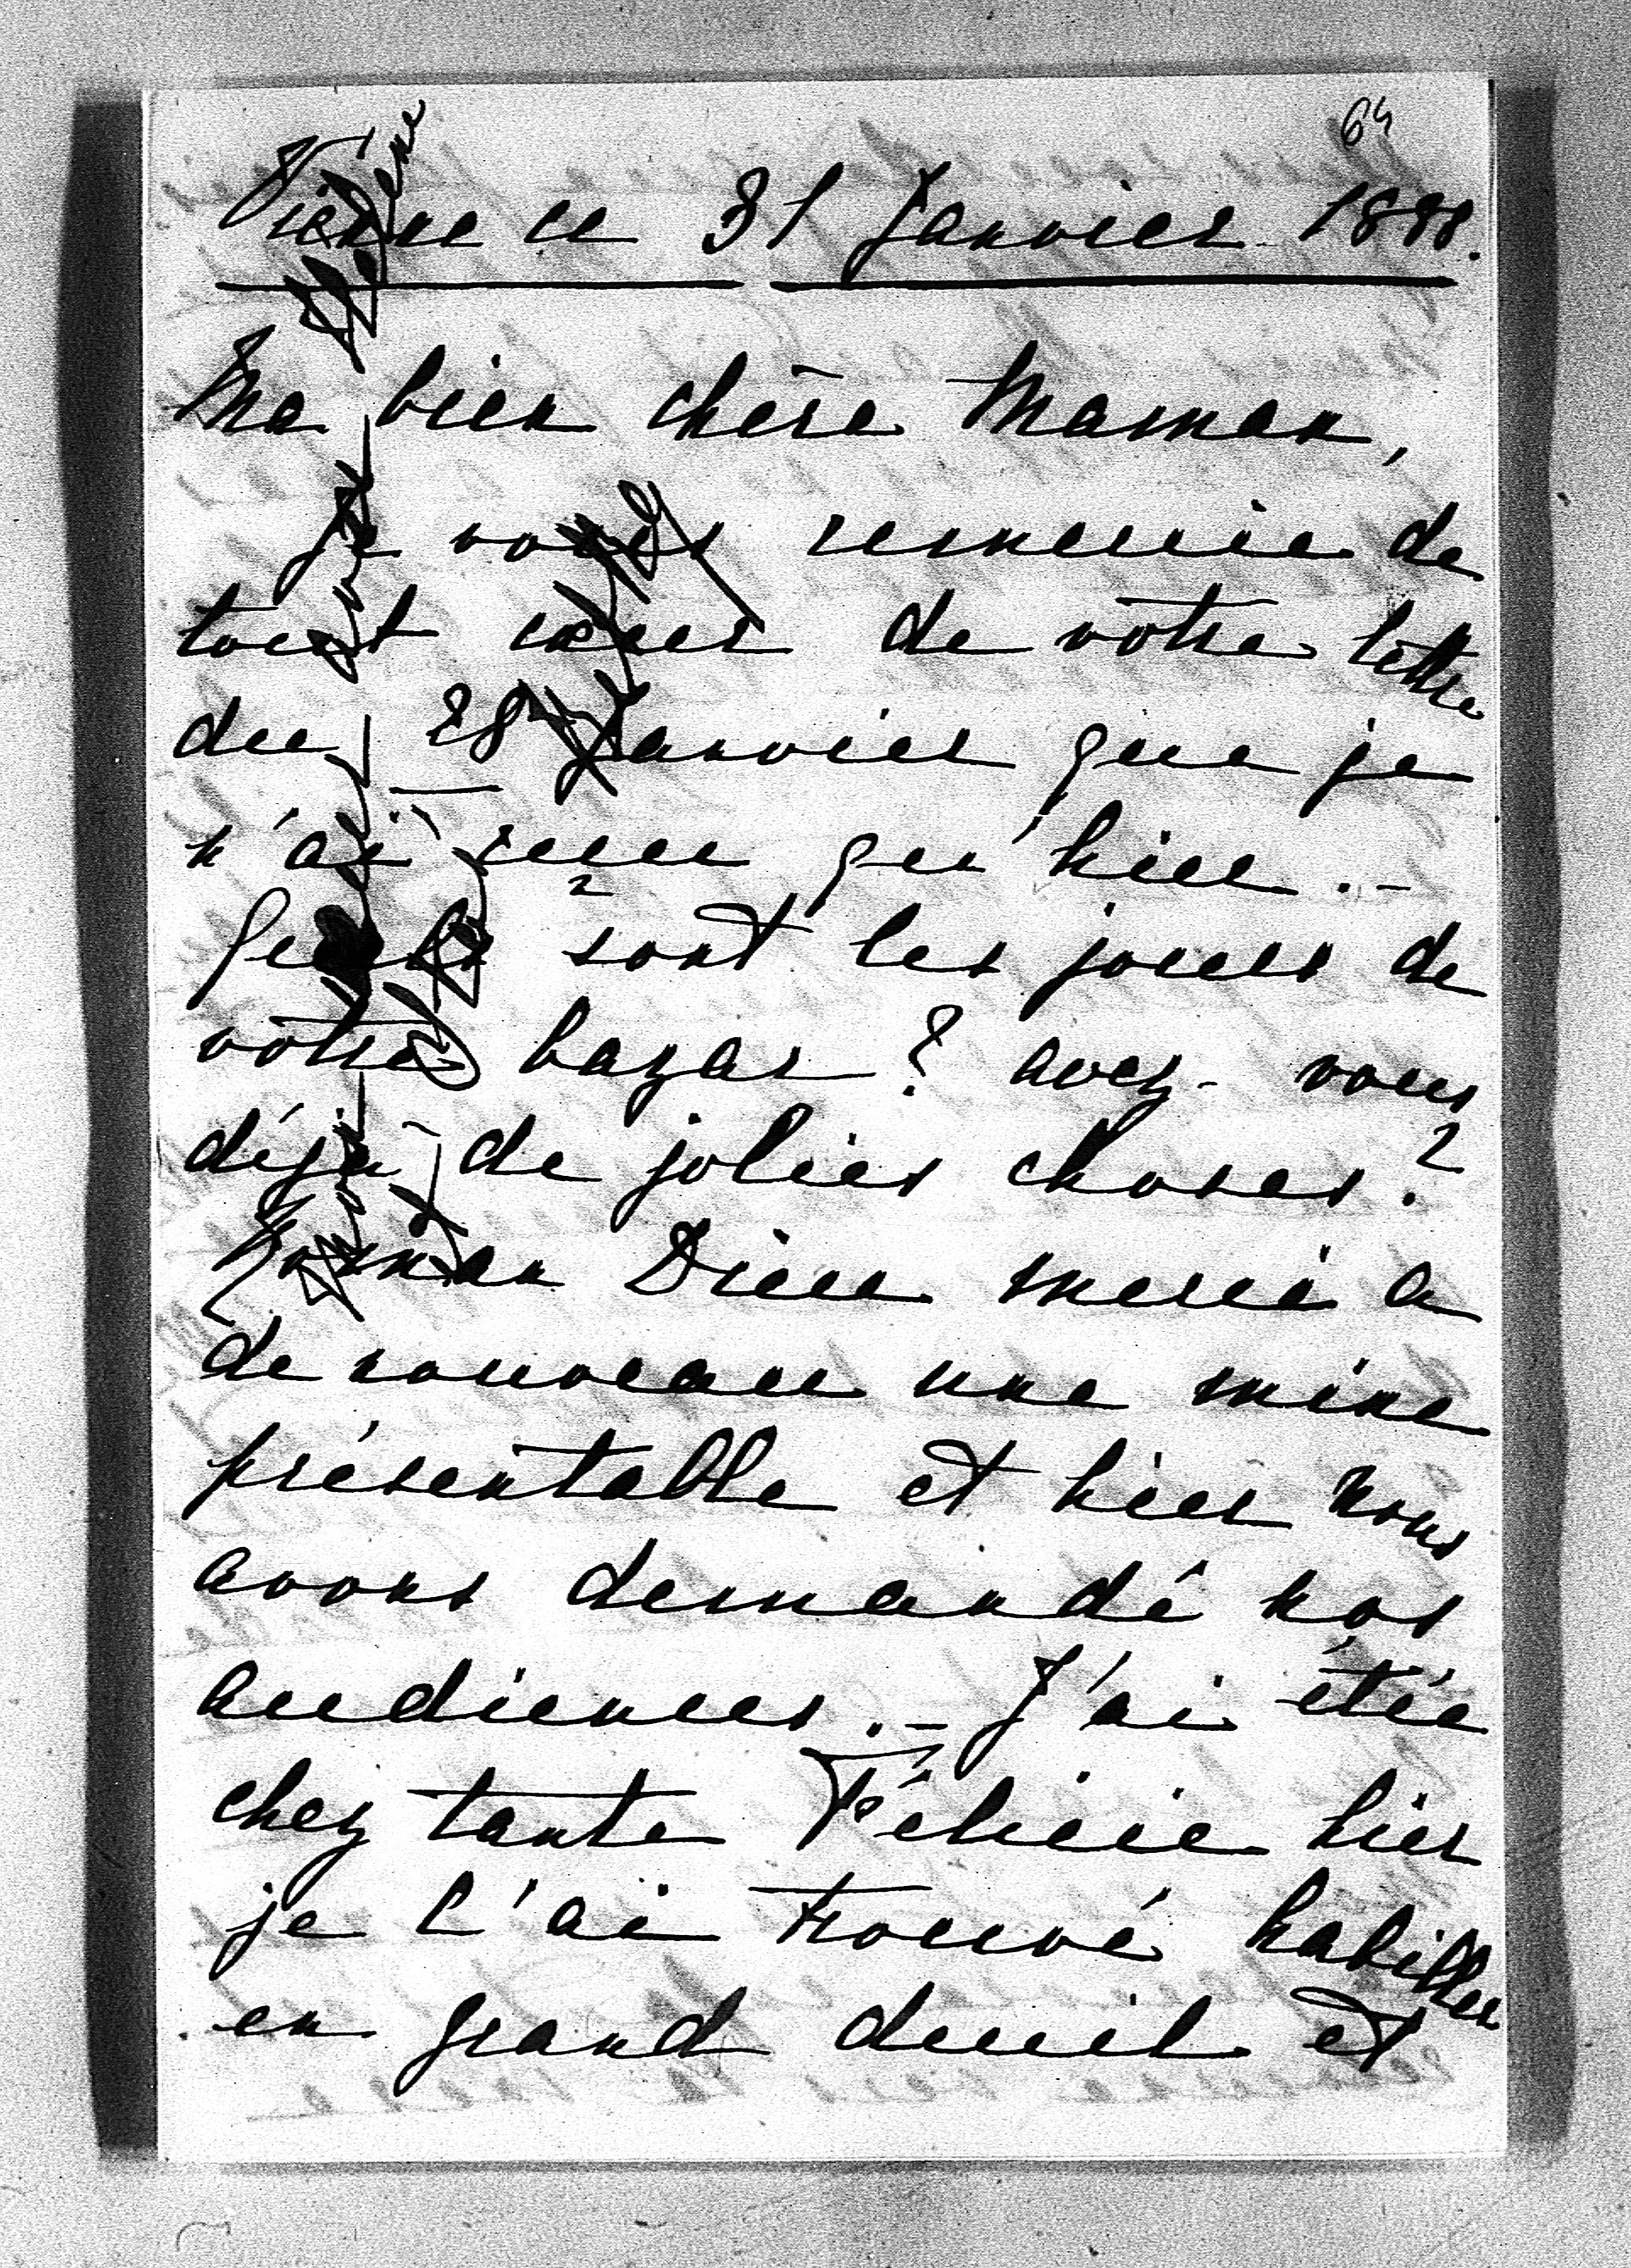 64
Vienne ce 31 Janvier 1888.
Ma bien chère Maman,
Je vous remercie de
tout cœur de votre lettre
du 28 Janvier que je
n'ai reçue qu'hier. –
Quels sont les jours de
vôtre bazar ? avez-vous
déja de jolies choses ?
Roman Dieu merci a
de nouveau une mine
présentable et hier nous
avons demandé nos
audiences. – J'ai étée
chez tante Félicie hier
je l'ai trouvé habillée
en grand deuil et